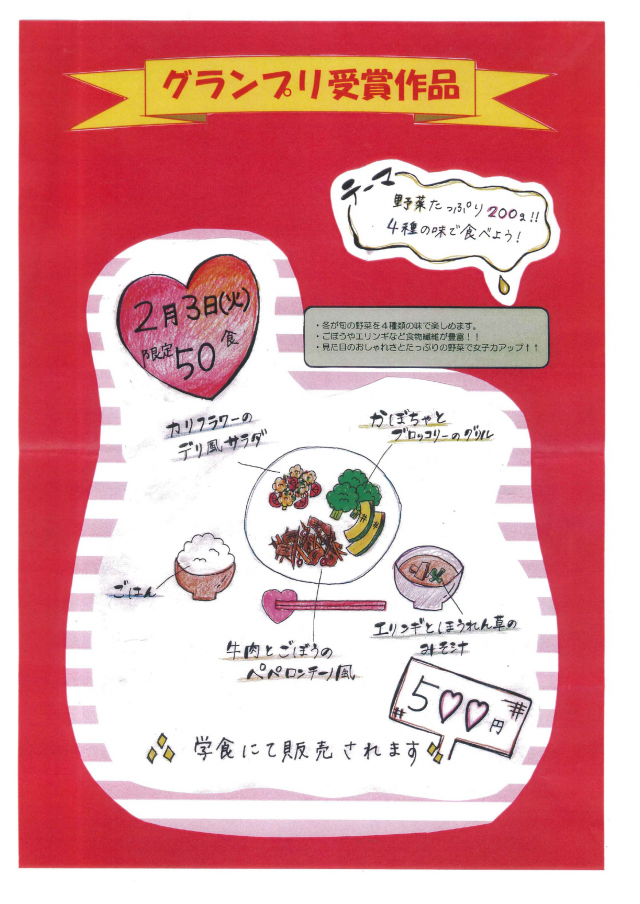 グランプリ受賞作品
テーマ
野菜たっぷり200g!!
4種の味で食べよう!
2月3日(火)
限定50食
・冬が旬の野菜を4種類の味で楽しめます。
・ごぼうやエリンギなど食物繊維が豊富!!
・見た目のおしゃれさとたっぷりの野菜で女子力アップ↑↑
カリフラワーの
デリ風サラダ
かぼちゃと
ブロッコリーのグリル
ごはん
エリンギとほうれん草の
みそ汁
牛肉とごぼうの
ペペロンチーノ風
500円
学食にて販売されます